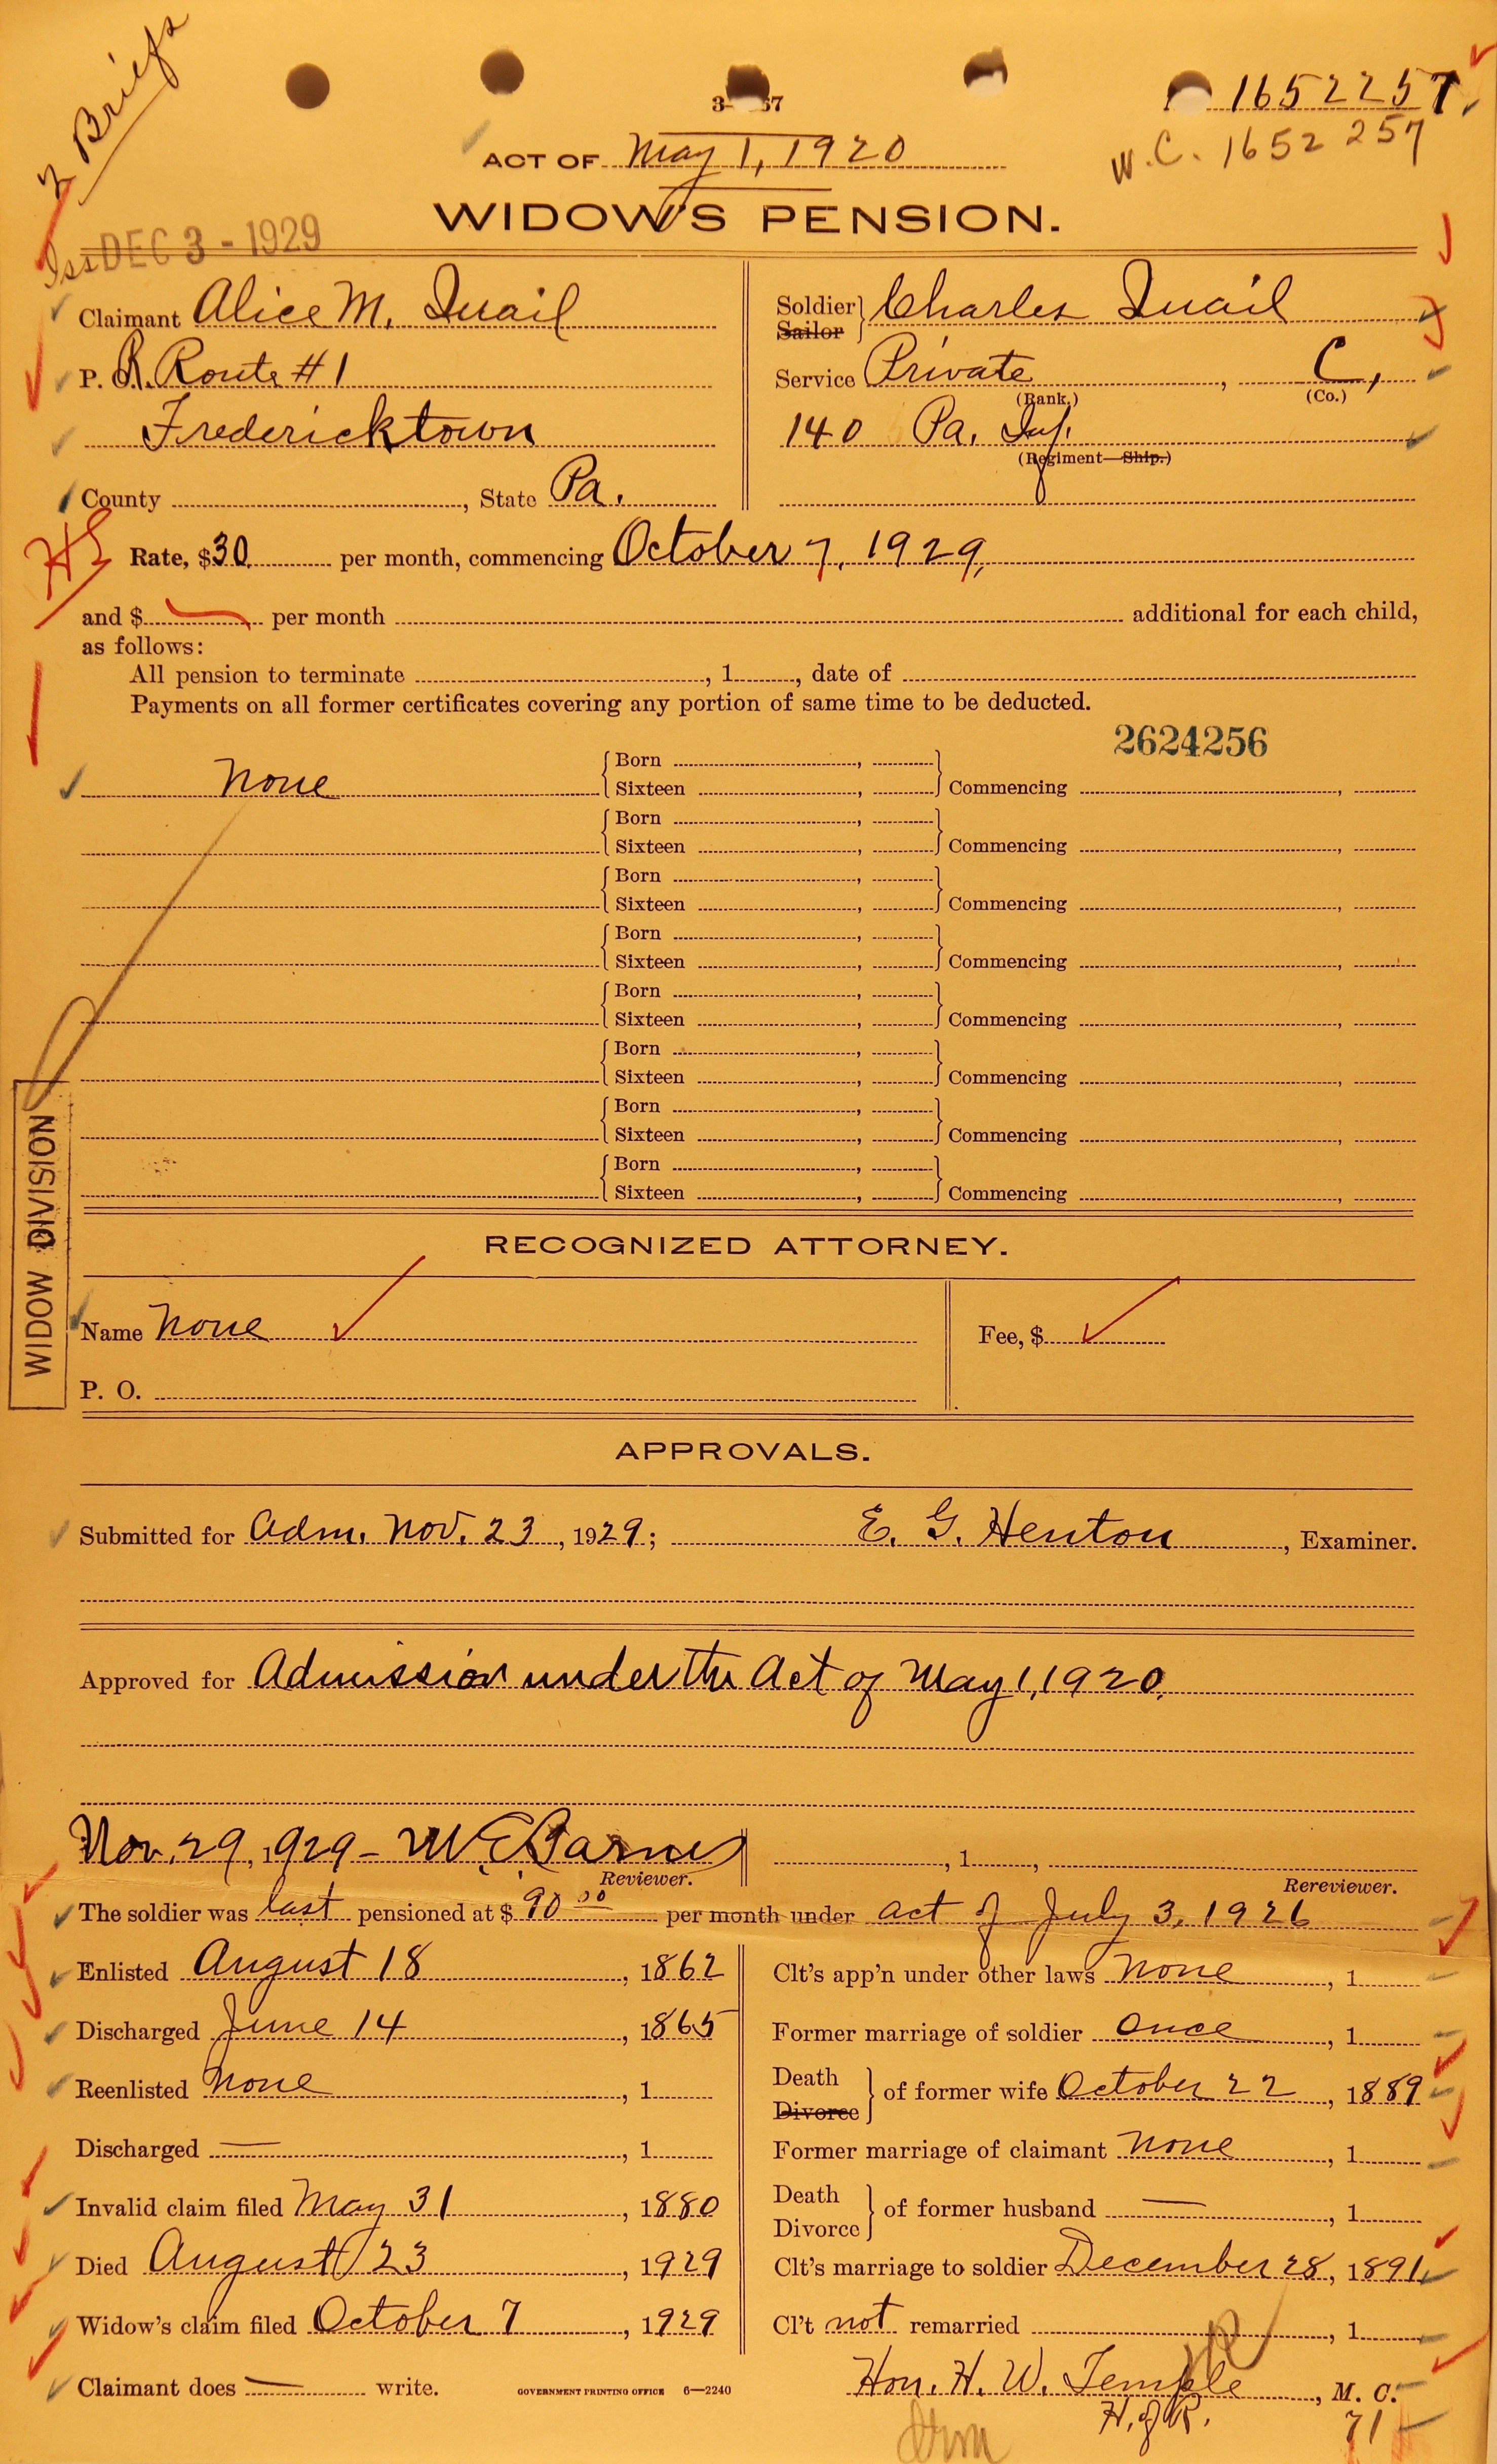 2 Briefs
1652257
W.C. 1652257
ACT OF May 1, 1920
WIDOW'S PENSION.
Iss DEC 3 - 1929
Claimant Alice M. Quail
P. O. R. Route #1
Fredericktown
County , State Pa.
Soldier Sailor Charles Quail
Service Private , C,
(Rank.) (Co.)
140 Pa. Inf.
(Regiment—Ship.)
Rate, $30 per month, commencing October 7, 1929,
and $ per month additional for each child,
as follows:
All pension to terminate , 1 , date of
Payments on all former certificates covering any portion of same time to be deducted.
2624256
None Born , Sixteen , Commencing ,
Born , Sixteen , Commencing ,
Born , Sixteen , Commencing ,
Born , Sixteen , Commencing ,
Born , Sixteen , Commencing ,
Born , Sixteen , Commencing ,
Born , Sixteen , Commencing ,
Born , Sixteen , Commencing ,
WIDOW DIVISION
RECOGNIZED ATTORNEY.
Name None Fee, $
P. O.
APPROVALS.
Submitted for Adm. Nov. 23, 1929; E. G. Henton, Examiner.
Approved for Admission under the Act of May 1, 1920.
Nov. 29, 1929 - W. E. Barnes , 1 ,
Reviewer. Rereviewer.
The soldier was last pensioned at $ 90 00 per month under act of July 3, 1926
Enlisted August 18, 1862
Discharged June 14, 1865
Reenlisted None , 1
Discharged — , 1
Invalid claim filed May 31, 1880
Died August 23, 1929
Widow's claim filed October 7, 1929
Claimant does — write.
Clt's app'n under other laws None , 1
Former marriage of soldier Once , 1
Death Divorce of former wife October 22, 1889
Former marriage of claimant None , 1
Death Divorce of former husband — , 1
Clt's marriage to soldier December 28, 1891
Cl't not remarried , 1
Hon. H. W. Temple, M. C.
H. of R.
71
GOVERNMENT PRINTING OFFICE 6—2240